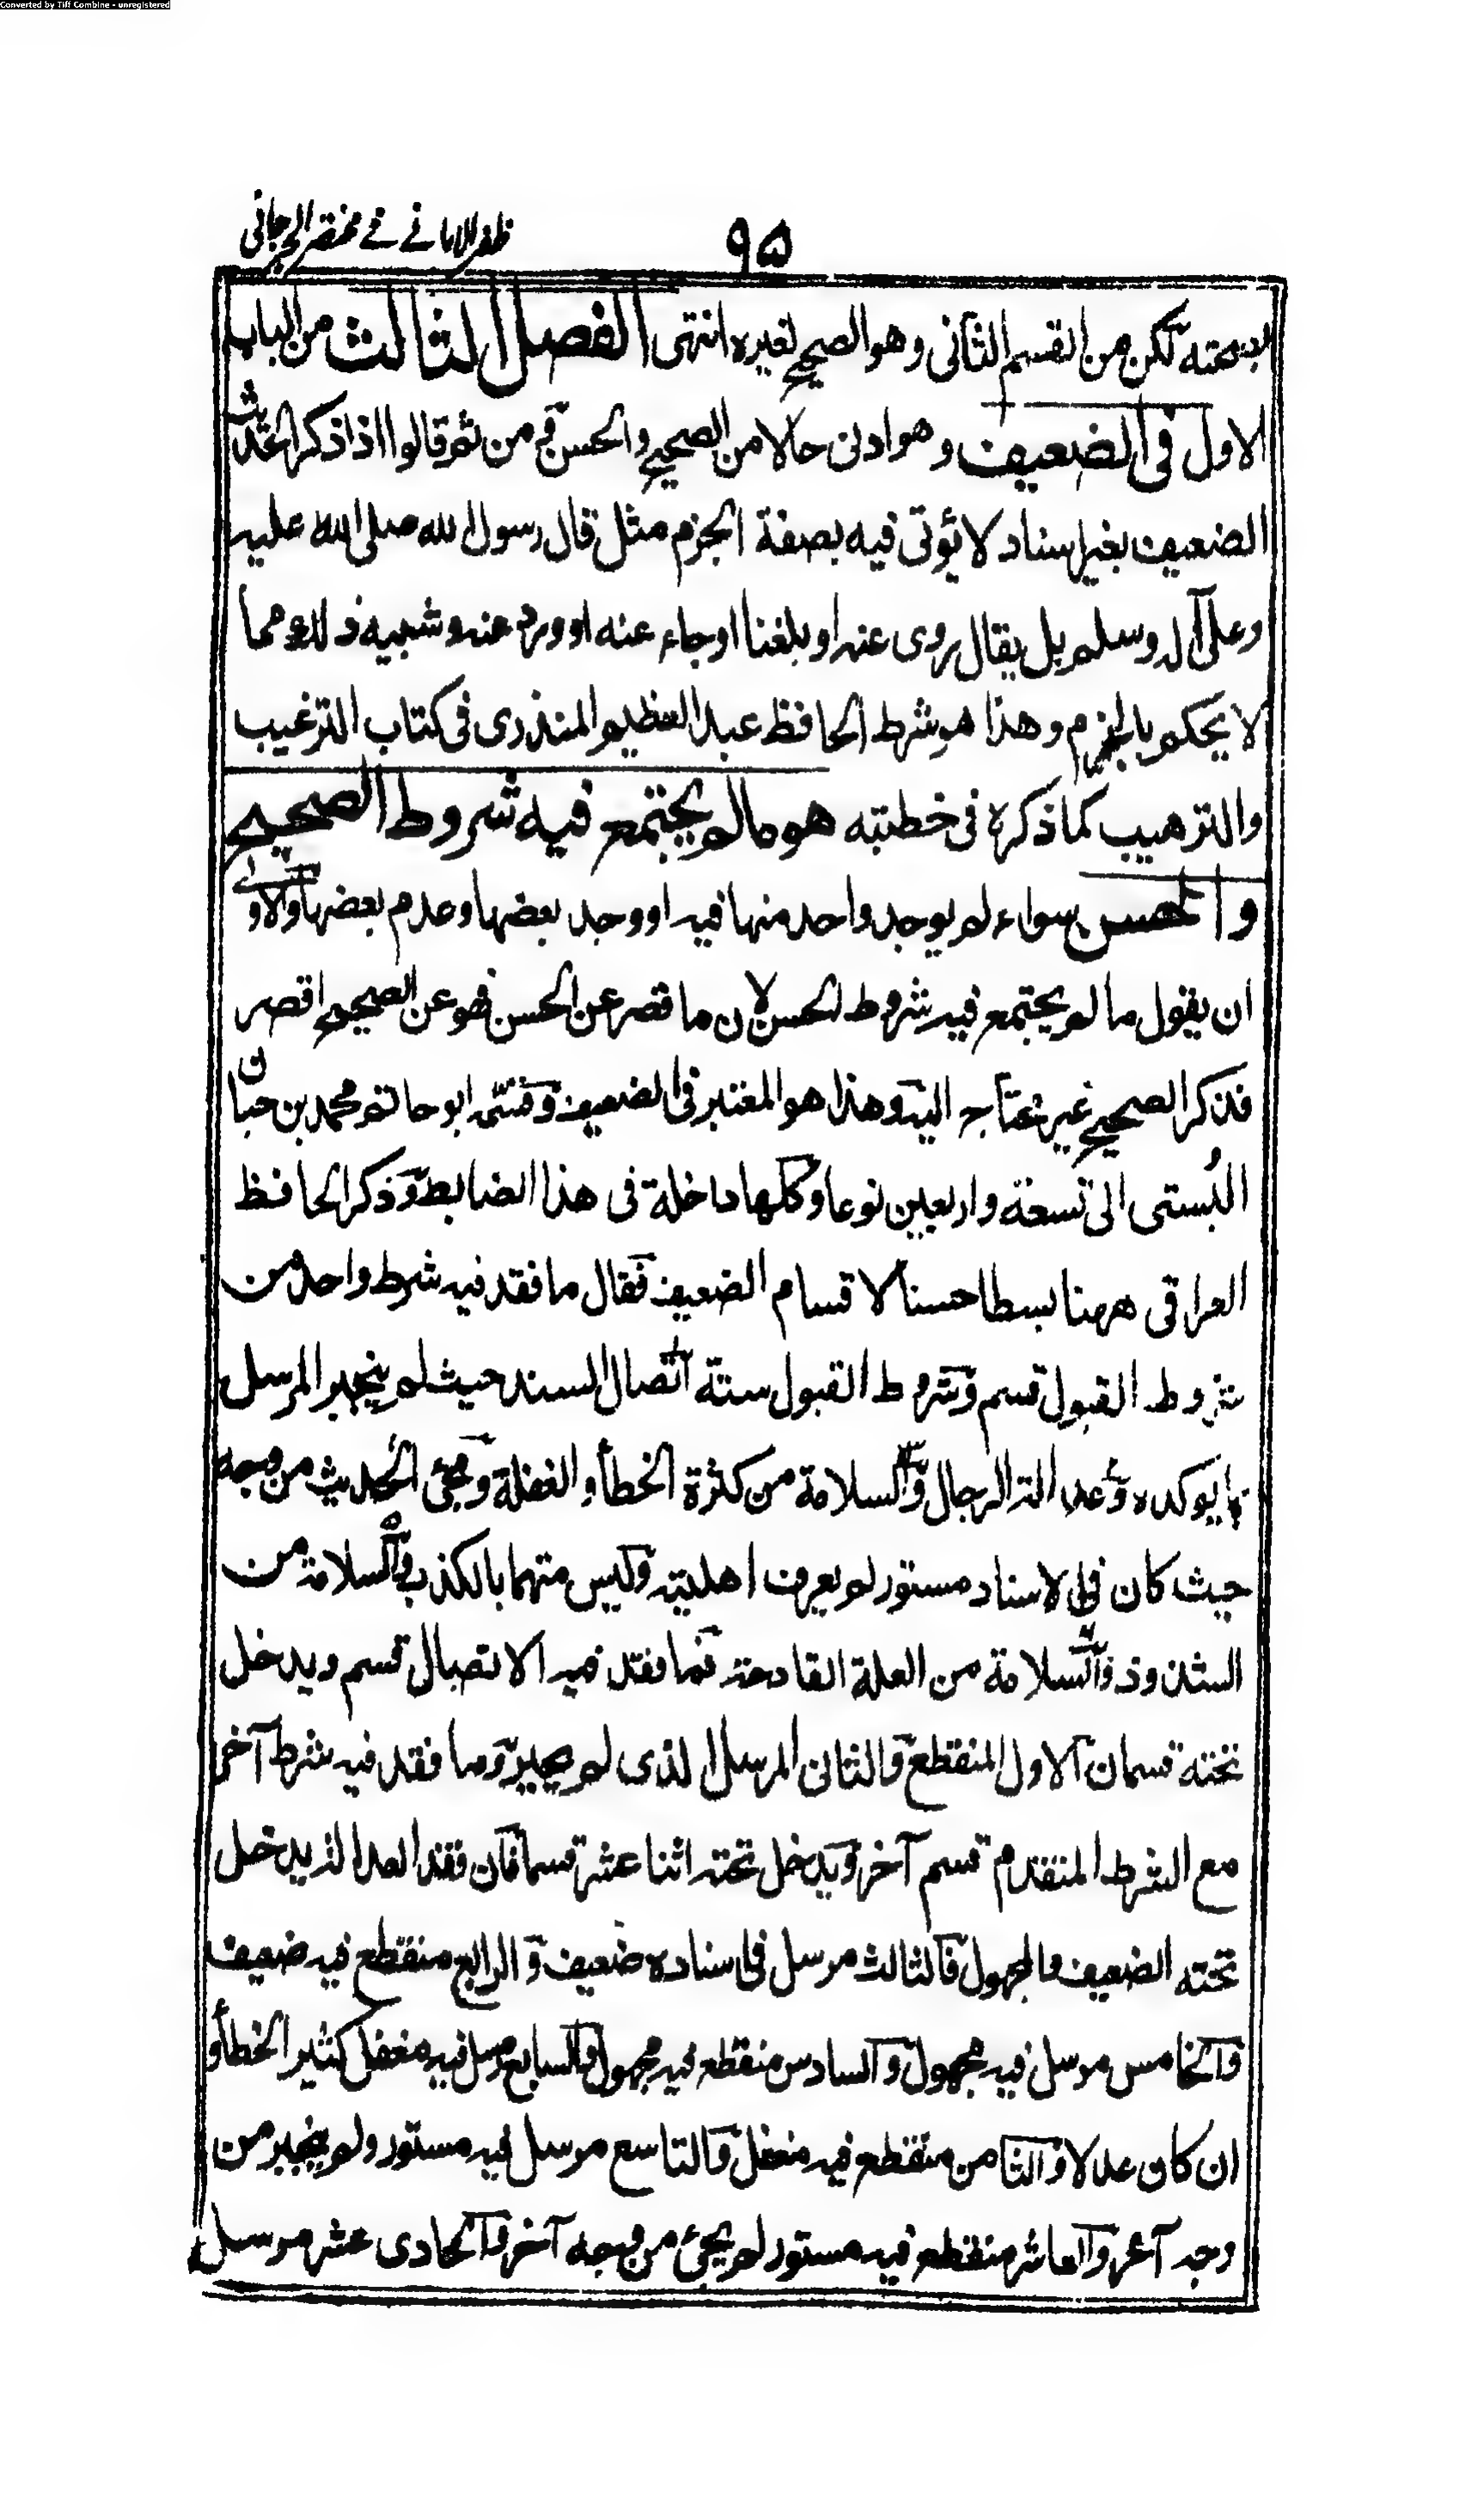 Converted by Tiff Combine - unregistered
٩٥
ظفر الامانے فے مختصر الجرجانی
بصحته لکن من القسم الثانی وهو الصحیح لغیره انتهی الفصل الثالث من الباب
الاول فی الضعیف وهو ادنی حالا من الصحیح والحسن ومن ثم قالوا اذا ذکر الحدیث
الضعیف بغیر اسناد لا یؤتی فیه بصفة الجزم مثل قال رسول الله صلی الله علیه
وعلی آله وسلم بل یقال روی عنه او بلغنا او جاء عنه او ورد عنه وشبیه ذلك مما
لا یحکم بالجزم وهذا هو شرط الحافظ عبد العظیم المنذری فی کتاب الترغیب
والترهیب کما ذکره فی خطبته هو مالم یجتمع فیه شروط الصحیح
والحسن سواء لم یوجد واحد منها فیه او وجد بعضها وعدم بعضها والاولی
ان یقول ما لم یجتمع فیه شروط الحسن لان ما قصر عن الحسن فهو عن الصحیح اقصر
فذکر الصحیح غیر محتاج الیه وهذا هو المعتبر فی الضعیف وقسمه ابو حاتم محمد بن حبان
البُستی الی تسعة واربعین نوعا وکلها داخلة فی هذا الضابط وذکر الحافظ
العراقی ههنا بسطا حسنا لاقسام الضعیف فقال ما فقد فیه شرط واحد من
شروط القبول قسم وشروط القبول ستة اتصال السند حیث لم ینجبر المرسل
بما یوکده وعدالة الرجال والسلامة من کثرة الخطأ والغفلة ومجئ الحدیث من وجه
حیث کان فی الاسناد مستور لم یعرف اهلیته ولیس متهما بالکذب والسلامة من
الشذوذ والسلامة من العلة القادحة فما فقد فیه الاتصال قسم ویدخل
تحته قسمان الاول المنقطع والثانی المرسل الذی لم یجبر وما فقد فیه شرط آخر
مع الشرط المتقدم قسم آخر ویدخل تحته اثنا عشر قسما فان فقد العدالة یدخل
تحته الضعیف والمجهول فالثالث مرسل فی اسناده ضعیف والرابع منقطع فیه ضعیف
والخامس مرسل فیه مجهول والسادس منقطع فیه مجهول والسابع مرسل فیه مغفل کثیر الخطأ و
ان کان عدلا والثامن منقطع فیه مغفل والتاسع مرسل فیه مستور ولم ینجبر من
وجه آخر والعاشر منقطع فیه مستور لم یجئ من وجه آخر والحادی عشر مرسل